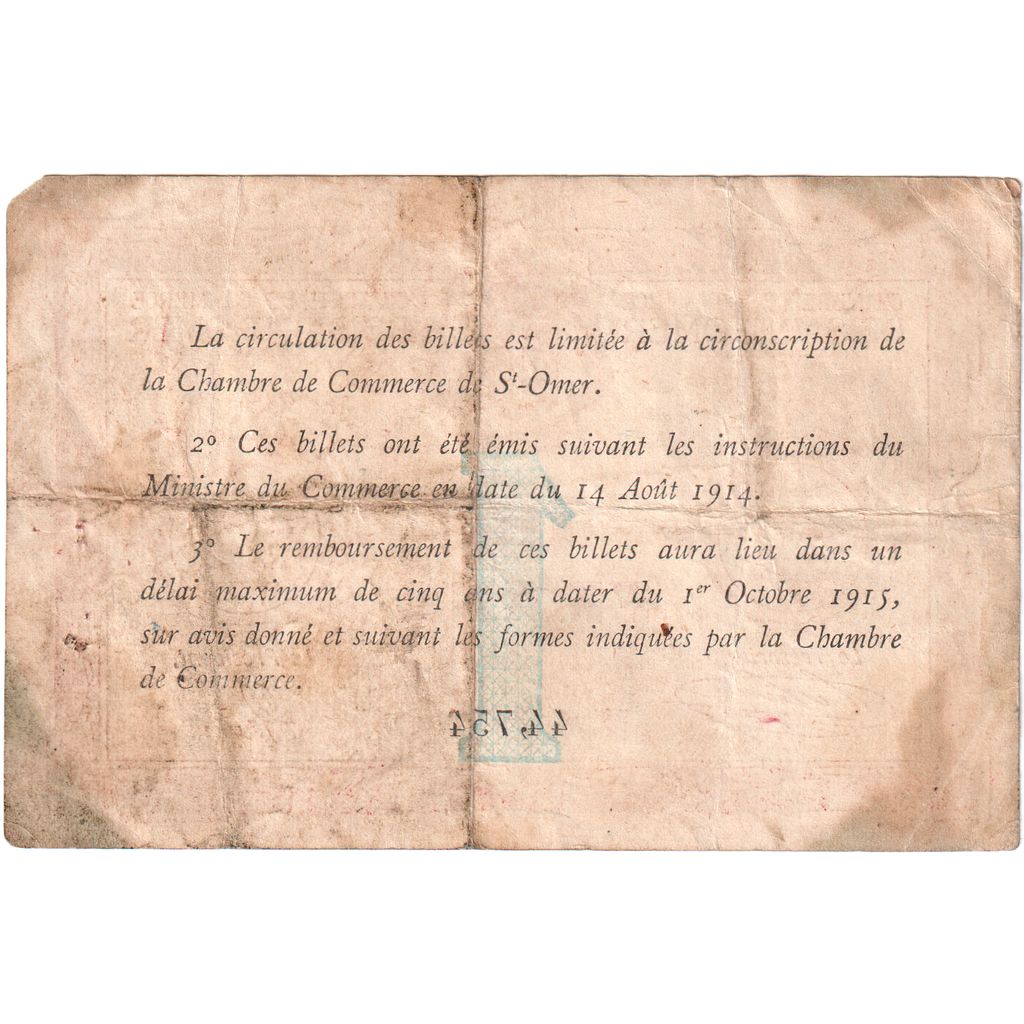 La circulation des billets est limitée à la circonscription de
la Chambre de Commerce de Sᵗ-Omer.
2º Ces billets ont été émis suivant les instructions du
Ministre du Commerce en date du 14 Août 1914.
3º Le remboursement de ces billets aura lieu dans un
délai maximum de cinq ans à dater du 1ᵉʳ Octobre 1915,
sur avis donné et suivant les formes indiquées par la Chambre
de Commerce.
44,754
1